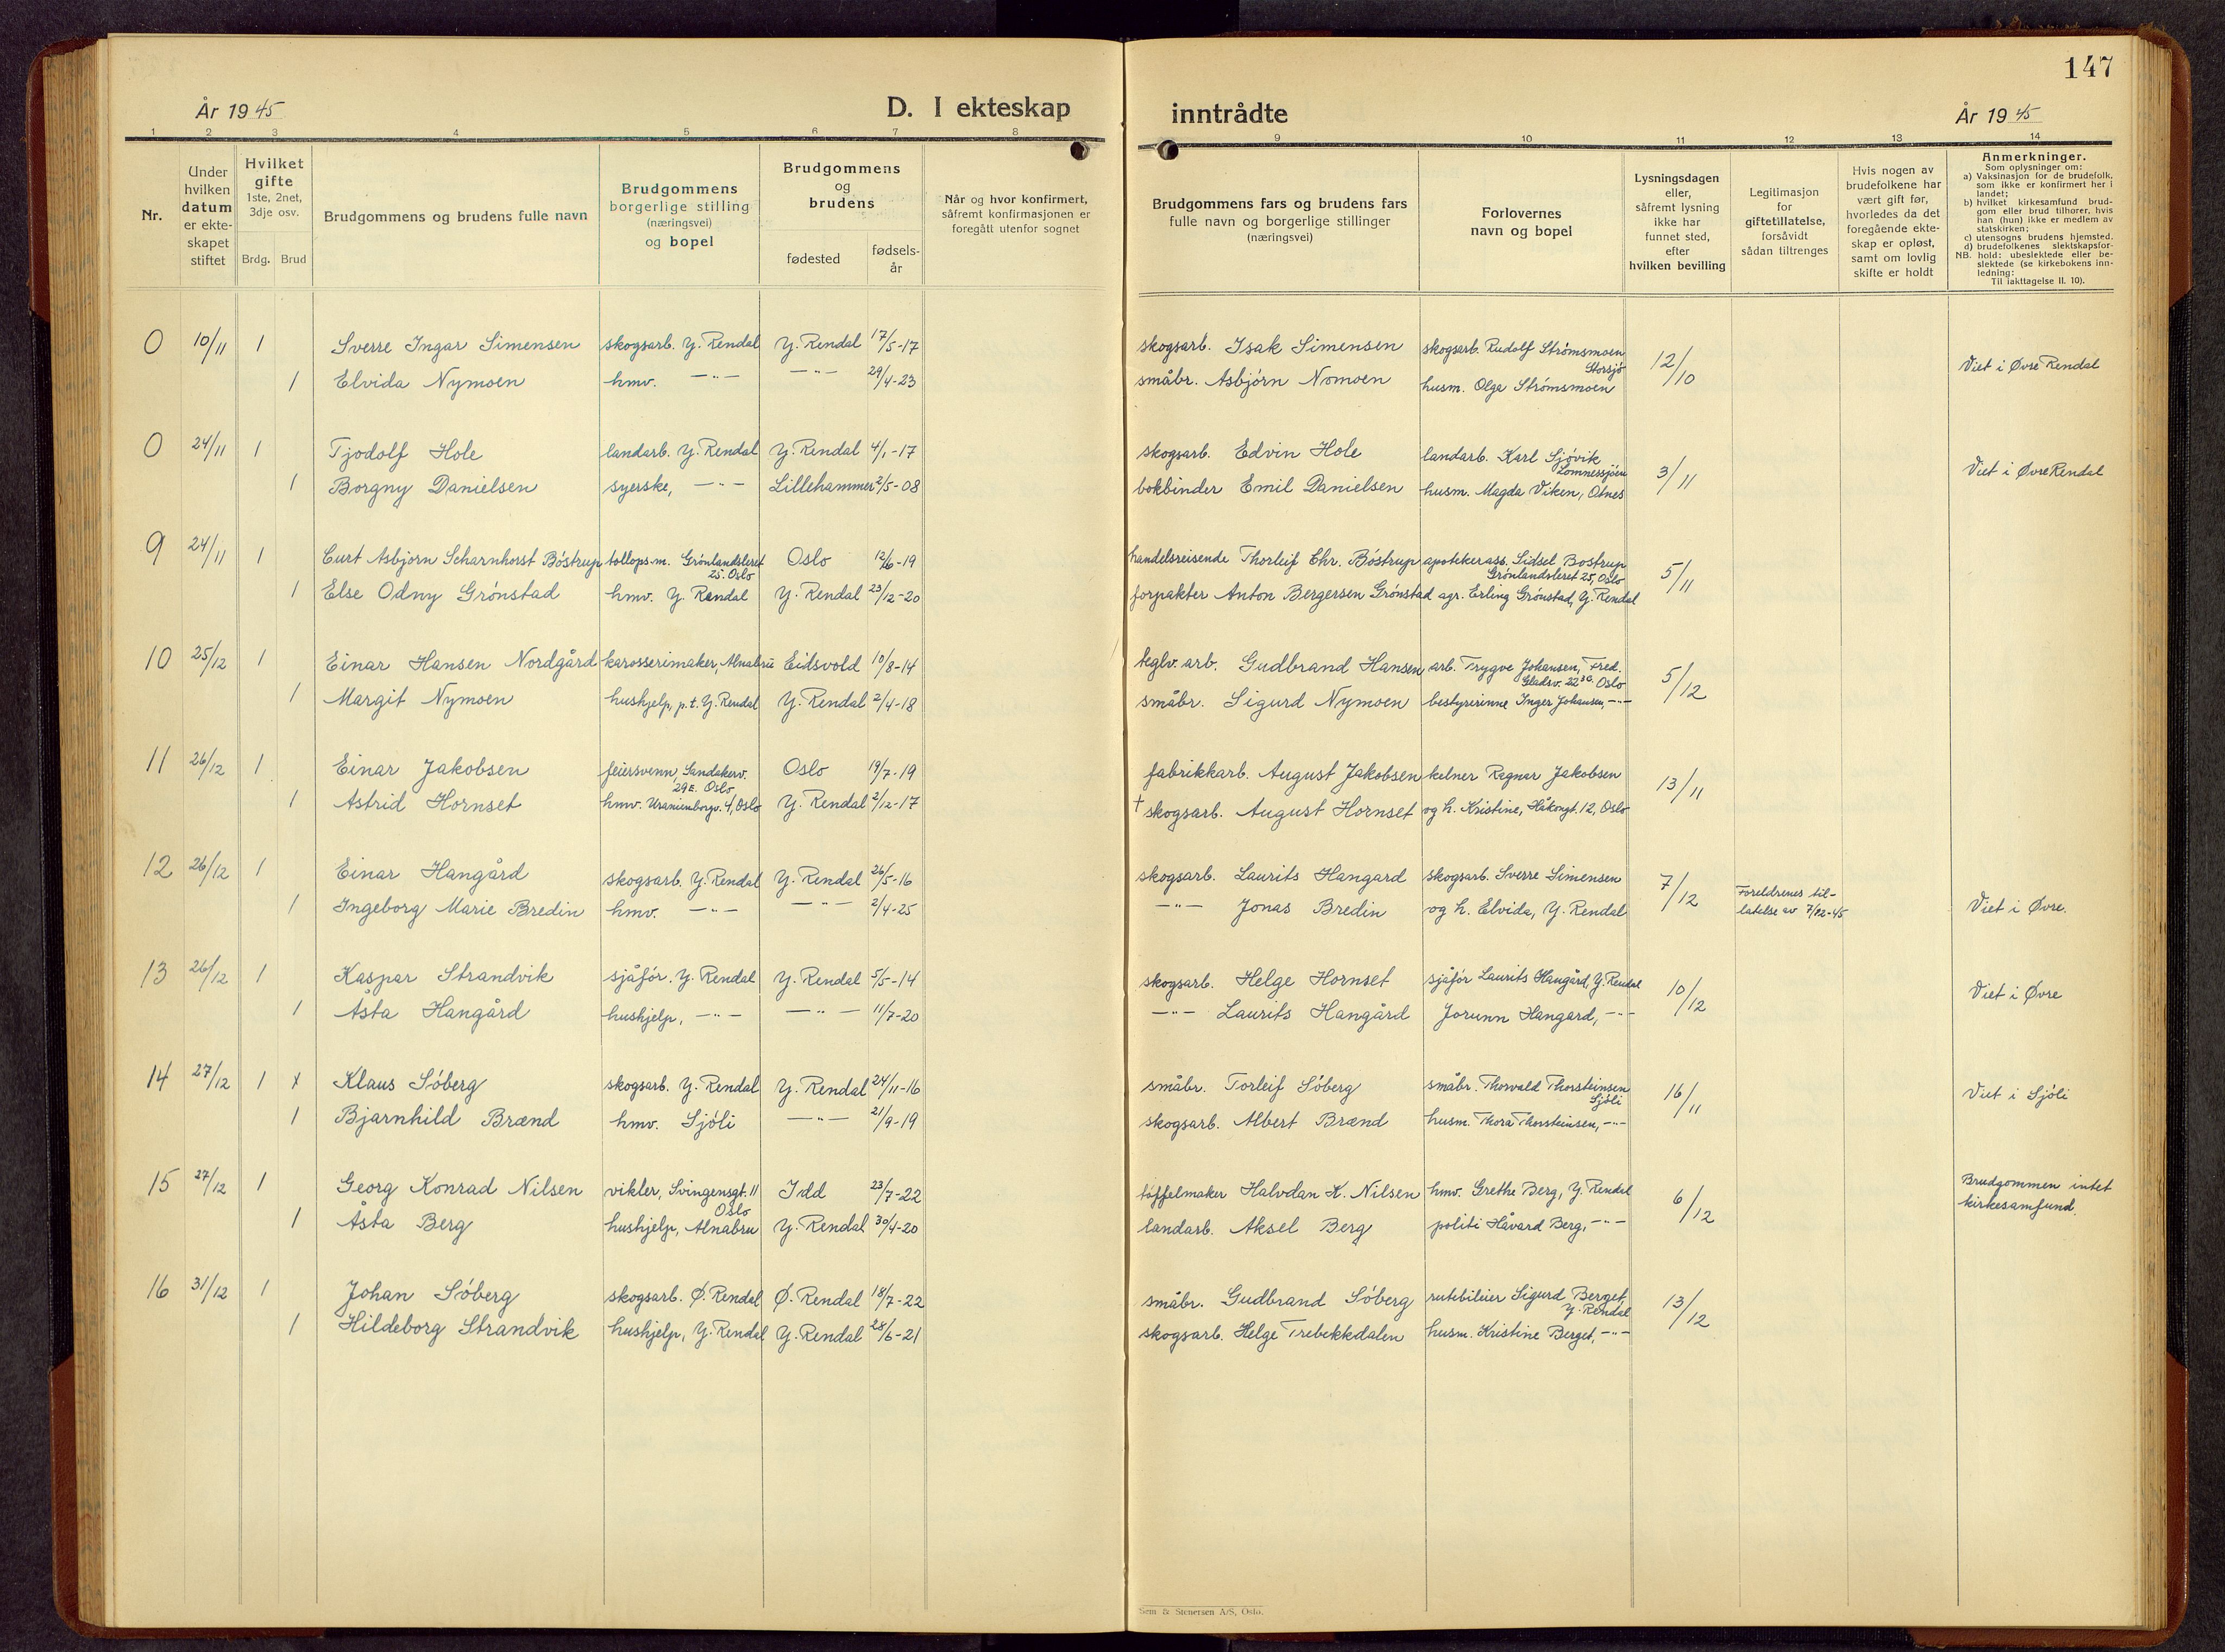 147
År 1945
D. I ekteskap inntrådte
År 1945
1 2 3 4 5 6 7 8 9 10 11 12 13 14
Nr.
Under
hvilken
datum
er ekte-
skapet
stiftet
Hvilket
gifte
1ste, 2net,
3dje osv.
Brdg. Brud
Brudgommens og brudens fulle navn
Brudgommens
borgerlige stilling
(næringsvei)
og bopel
Brudgommens
og
brudens
fødested
fødsels-
år
Når og hvor konfirmert,
såfremt konfirmasjonen er
foregått utenfor sognet
Brudgommens fars og brudens fars
fulle navn og borgerlige stillinger
(næringsvei)
Forlovernes
navn og bopel
Lysningsdagen
eller,
såfremt lysning
ikke har
funnet sted,
efter
hvilken bevilling
Legitimasjon
for
giftetillatelse,
forsåvidt
sådan tiltrenges
Hvis nogen av
brudefolkene har
vært gift før,
hvorledes da det
foregående ekte-
skap er opløst,
samt om lovlig
skifte er holdt
Anmerkninger.
Som oplysninger om:
a) Vaksinasjon for de brudefolk,
som ikke er konfirmert her i
landet;
b) hvilket kirkesamfund brud-
gom eller brud tilhører, hvis
han (hun) ikke er medlem av
statskirken;
c) utensogns brudens hjemsted.
d) brudefolkenes slektskapsfor-
NB. hold: ubeslektede eller be-
slektede (se kirkebokens inn-
ledning:
Til iakttagelse II. 10).
0 10/11 1 Sverre Ingar Simensen skogsarb. Y. Rendal Y. Rendal 17/5-17 skogsarb. Isak Simensen skogsarb. Rudolf Strømsmoen
Storsjø 12/10 Viet i Øvre Rendal
1 Elvida Nymoen hmv. -"- -"- 29/4-23 småbr. Asbjørn Nomoen husm. Olga Strømsmoen
0 24/11 1 Tjodolf Hole landarb. Y. Rendal Y. Rendal 4/1-17 skogsarb. Edvin Hole landarb. Karl Sjøvik
Lomnessjøen 3/11 Viet i Øvre Rendal
1 Borgny Danielsen syerske, -"- Lillehammer 2/5-08 bokbinder Emil Danielsen husm. Magda Viken, Otnes
9 24/11 1 Curt Asbjørn Scharnhorst Bóstrup tollops.m. Grønlandsleret
25. Oslo Oslo 12/6-19 handelsreisende Thorleif Chr. Bóstrup apotekerass. Sidsel Bostrup
Grønlandsleret 25, Oslo 5/11
1 Else Odny Grønstad hmv. Y. Rendal Y. Rendal 23/12-20 forpakter Anton Bergersen Grønstad agr. Erling Grønstad, Y. Rendal
10 25/12 1 Einar Hansen Nordgård karosserimaker, Alnabru Eidsvold 10/8-14 teglv. arb. Gudbrand Hansen arb. Trygve Johansen, Fred.
Gladsv. 22 Oslo 5/12
1 Margit Nymoen hushjelp, p.t. Y. Rendal Y. Rendal 2/4-18 småbr. Sigurd Nymoen bestyrerinne Inger Johansen, -"-
11 26/12 1 Einar Jakobsen feiersvenn, Sandakerv.
29E. Oslo Oslo 19/7-19 fabrikkarb. August Jakobsen kelner Ragnar Jakobsen 13/11
1 Astrid Hornset hmv. Uranienborgv. 4, Oslo Y. Rendal 2/12-17 † skogsarb. August Hornset og h. Kristine, Håkongt. 12, Oslo
12 26/12 1 Einar Hangård skogsarb. Y. Rendal Y. Rendal 26/5-16 skogsarb. Laurits Hangard skogsarb. Sverre Simensen 7/12 Foreldrenes til-
latelse av 7/12-45 Viet i Øvre.
1 Ingeborg Marie Bredin hmv. -"- -"- 2/4-25 -"- Jonas Bredin og h. Elvida, Y. Rendal
13 26/12 1 Kaspar Strandvik sjåfør. Y. Rendal Y. Rendal 5/5-14 skogsarb. Helge Hornset sjåfør Laurits Hangård, Y. Rendal 10/12 Viet i Øvre
1 Åsta Hangård hushjelp, -"- -"- 11/7-20 -"- Laurits Hangård Jorunn Hangard, -"-
14 27/12 1 Klaus Søberg skogsarb. Y. Rendal Y. Rendal 24/11-16 småbr. Torleif Søberg småbr. Thorvald Thorsteinsen
Sjøli 16/11 Viet i Sjøli
1 Bjarnhild Brænd hmv. Sjøli -"- 21/9-19 skogsarb. Albert Brænd husm. Thora Thorsteinsen, -"-
15 27/12 1 Georg Konrad Nilsen vikler, Svingensgt. 11
Oslo Idd 23/7-22 tøffelmaker Halvdan K. Nilsen hmv. Grethe Berg, Y. Rendal 6/12 Brudgommen intet
kirkesamfund.
1 Åsta Berg hushjelp, Alnabru Y. Rendal 30/4-20 landarb. Aksel Berg politi Håvard Berg, -"-
16 31/12 1 Johan Søberg skogsarb. Ø. Rendal Ø. Rendal 18/7-22 småbr. Gudbrand Søberg rutebileier Sigurd Berget,
Y. Rendal 13/12
1 Hildeborg Strandvik hushjelp, Y. Rendal Y. Rendal 28/6-21 skogsarb. Helge Trebekkdalen husm. Kristine Berget, -"-
Sem & Stenersen A/S, Oslo.